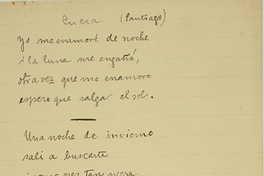 Cueca (Santiago)
Yo me enamoré de noche
i la luna me engañó,
otra vez que me enamore
espero que salga el sol.
Una noche de invierno
salí a buscarte